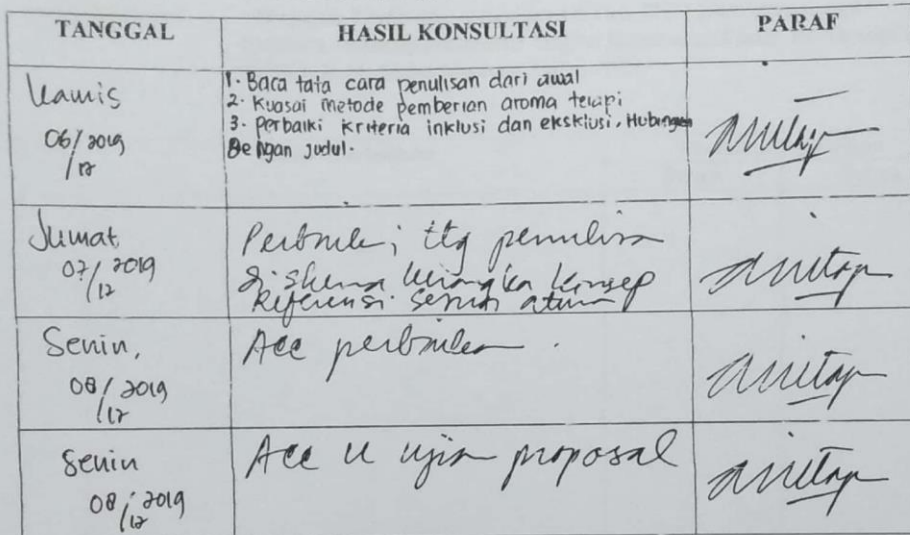 TANGGAL HASIL KONSULTASI PARAF
Kamis
06/2019
/12
1. Baca tata cara penulisan dari awal
2. Kuasai metode pemberian aroma terapi
3. Perbaiki kriteria inklusi dan eksklusi. Hubungan
Dengan judul.
Jumat
07/2019
/12
ttg penulisan
di skema kerangka konsep
Referensi sesuai aturan
Senin,
08/2019
/12
Acc
Senin
08/2019
/12
Acc u ujian proposal